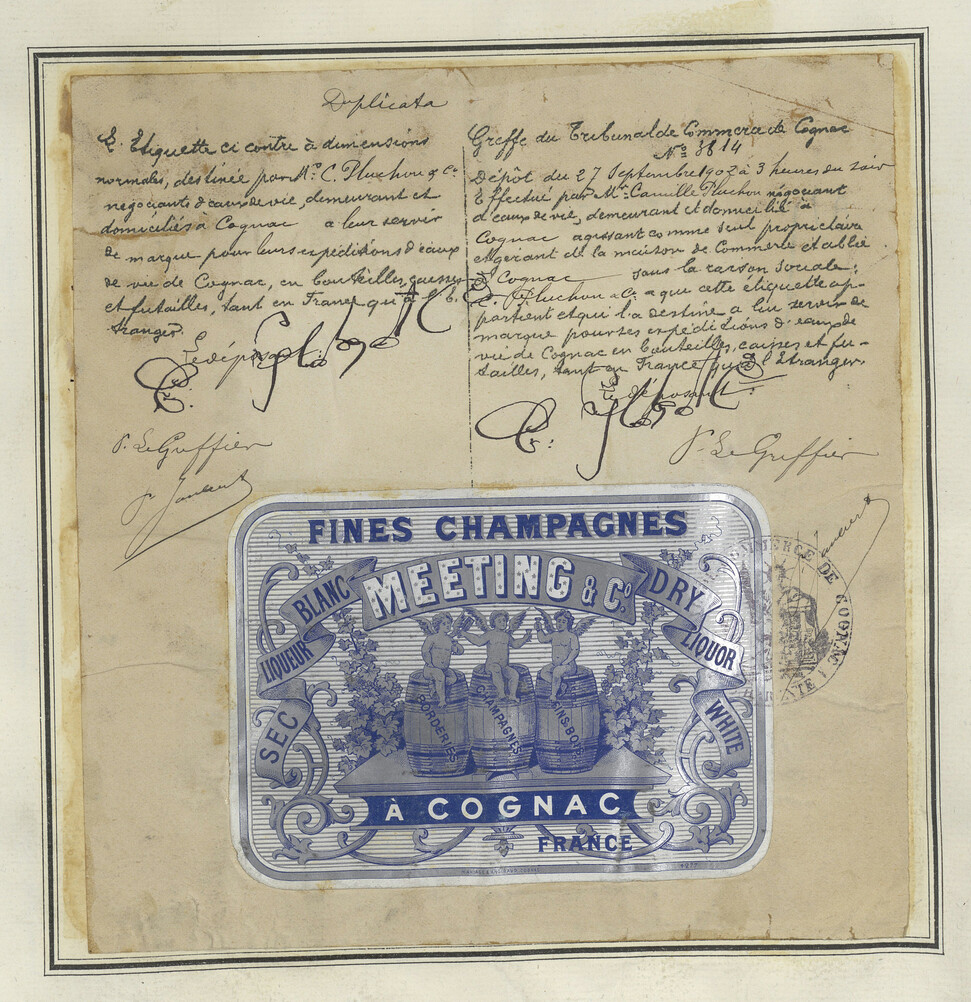 Duplicata
L'Etiquette ci contre à dimensions
normales, destinée par Mr. C. Pluchon & Co.
négociants d'eaux de vie, demeurant et
domiciliés à Cognac à leur servir
de marque pour leurs expéditions d'eaux
de vie de Cognac, en bouteilles, caisses
et futailles, tant en France qu'à l'E
tranger.
Le déposant:
P. Le Greffier
Greffe du Tribunal de Commerce de Cognac
No 3814
Dépôt du 27 Septembre 1902 à 3 heures du soir
Effectué par Mr. Camille Pluchon négociant
d'eaux de vie, demeurant et domicilié à
Cognac agissant comme seul propriétaire
et gérant de la maison de Commerce établie
à Cognac sous la raison sociale:
C. Pluchon & Co. que cette étiquette ap-
partient et qu'il l'a destiné à lui servir de
marque pour ses expéditions d'eaux de
vie de Cognac en bouteilles, caisses et fu-
tailles, tant en France qu'à l'Etranger.
Le déposant
P. Le Greffier
FINES CHAMPAGNES
MEETING & Co.
BLANC
LIQUEUR
SEC
DRY
LIQUOR
WHITE
BORDERIES
CHAMPAGNES
FINS BOIS
À COGNAC
FRANCE
COMMERCE DE COGNAC